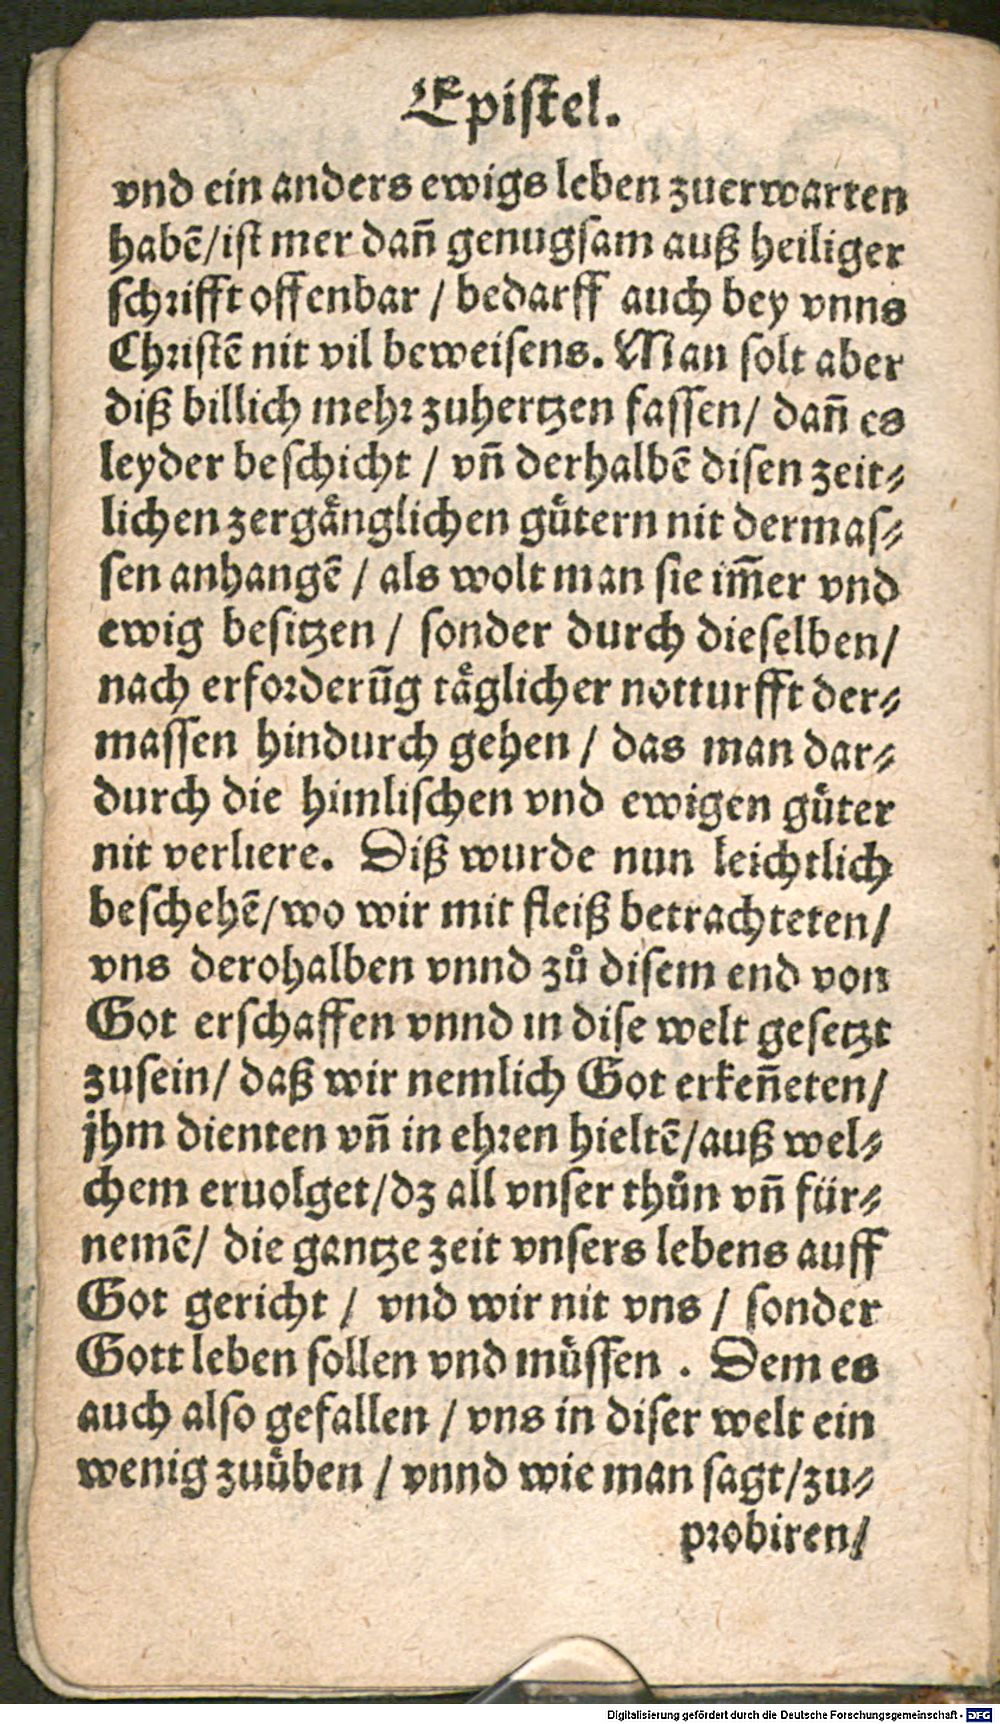 Epistel.
vnd ein anders ewigs leben zuerwarten
habē/ist mer dañ genugsam auß heiliger
schrifft offenbar / bedarff auch bey vnns
Christē nit vil beweisens. Man solt aber
diß billich mehr zuhertzen fassen/ dañ es
leyder beschicht / vñ derhalbē disen zeit⸗
lichen zergaͤnglichen guͤtern nit dermas⸗
sen anhangē / als wolt man sie im̄er vnd
ewig besitzen / sonder durch dieselben/
nach erforderūg taͤglicher notturfft der⸗
massen hindurch gehen / das man dar⸗
durch die himlischen vnd ewigen guͤter
nit verliere. Diß wurde nun leichtlich
beschehē/wo wir mit fleiß betrachteten/
vns derohalben vnnd zů disem end von
Got erschaffen vnnd in dise welt gesetzt
zusein/ daß wir nemlich Got erkeñeten/
jhm dienten vñ in ehren hieltē/auß wel⸗
chem eruolget/dz all vnser thůn vñ für⸗
nemē/ die gantze zeit vnsers lebens auff
Got gericht / vnd wir nit vns / sonder
Gott leben sollen vnd muͤssen . Dem es
auch also gefallen / vns in diser welt ein
wenig zuuͤben / vnnd wie man sagt/zu⸗
probiren/
Digitalisierung gefördert durch die Deutsche Forschungsgemeinschaft - DFG